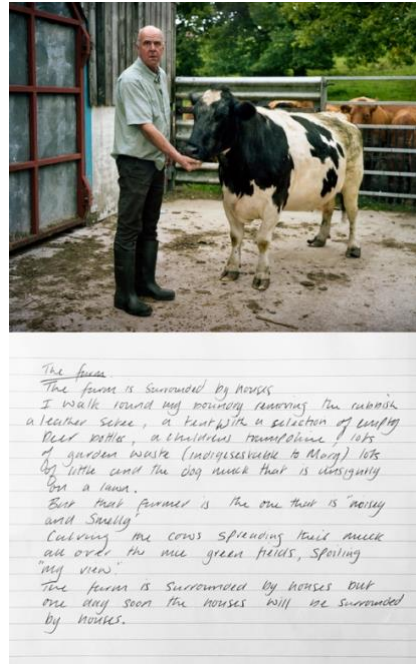 The farm
The farm is surrounded by houses
I walk round my boundry removing the rubbish
a leather settee, a tent with a selection of empty
beer bottles, a childrens trampoline, lots
of garden waste (indigeseteable to Marg) lots
of little and the dog muck that is unsightly
on a lawn.
But that farmer is the one that is "noisey
and Smelly"
the cows spreading their muck
all over the nice green fields, spoiling
"my view".
The farm is surrounded by houses but
one day soon the houses will be surrounded
by houses.